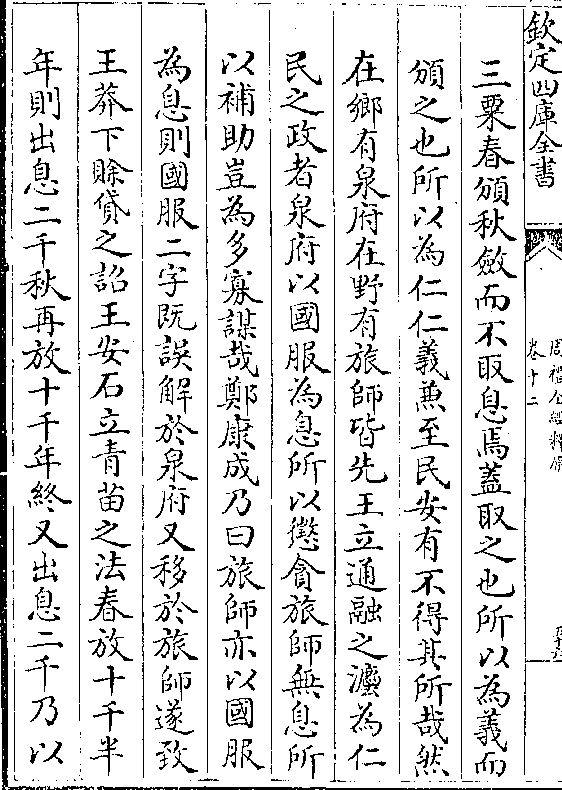 欽定四庫全書
周禮全經釋原
卷十二
三粟春頒秋斂而不取息焉蓋取之也所以為義而
頒之也所以為仁仁義兼至民安有不得其所哉然
在鄉有泉府在野有旅師皆先王立通融之灋為仁
民之政者泉府以國服為息所以懲貪旅師無息所
以補助豈為多寡謀哉鄭康成乃曰旅師亦以國服
為息則國服二字既誤解於泉府又移於旅師遂致
王莽下賒貸之詔王安石立青苗之法春放十千半
年則出息二千秋再放十千年終又出息二千乃以